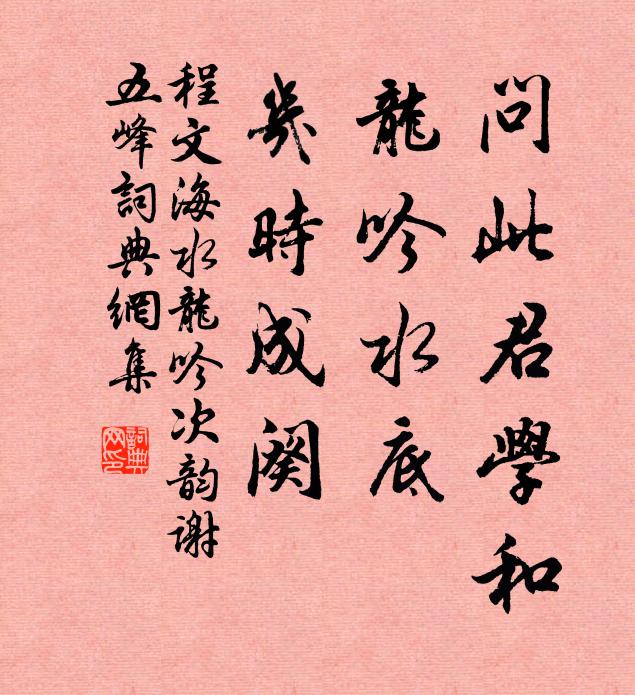 問此君學和
龍吟水底
幾時成闋
程文海水龍吟次韵謝
五峰詞典網集
詞典
网印